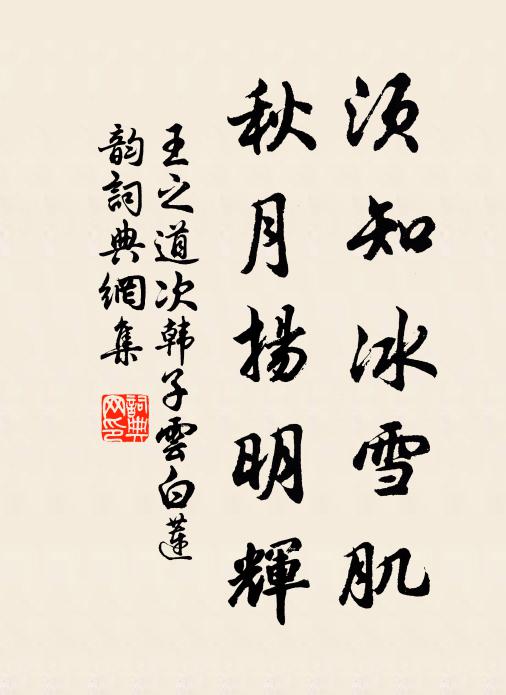 須知冰雪肌
秋月揚明輝
王之道次韩子雲白蓮
韵詞典網集
詞典
网印